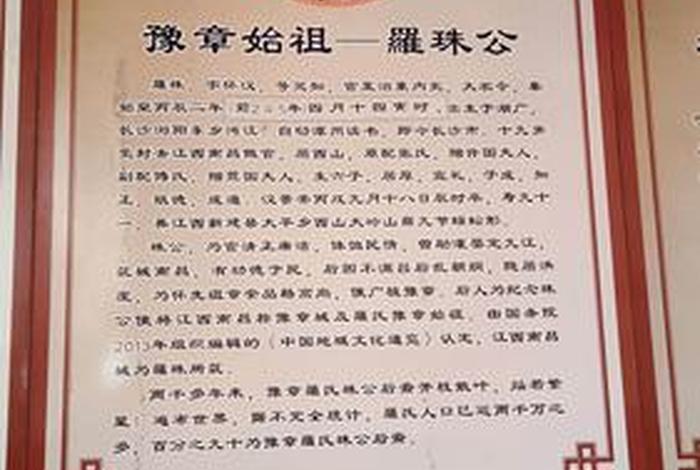 豫章始祖—羅珠公
羅珠，字怀汉，号灵知，官至治粟内史，大农令，秦
始皇丙辰二年 前2 5年四月十四寅时，出生于湖广，
长沙浏阳 乡 ，自幼潭州读书，即今长沙市，十九
封 江西南昌 官，居西山，原配张氏，赠许国夫人，
副配陈氏，赠莒国夫人，生六子，居厚，宣礼，
正，纵德，汉景帝丙戌九月十八日辰时卒，寿九十
一，葬江西新建县太平乡西山大岭山
珠公，乃官清正廉洁，体恤民情，曾助灌婴定九江，
筑城南昌，有功德于民，后因不满吕后乱朝纲，隐居洪
崖，为怀先祖章全品格高尚，植广植豫章，后人为纪念珠
公便将江西南昌称豫章城及羅氏豫章始祖，由国务院
2013年组织编辑的《中国地域文化通览》认定，江西南昌
城为羅珠所筑。
两千多年来，豫章羅氏珠公后裔开枝散叶，灿若繁
星，遍布世界，据不完全统计，羅氏人口已近两千万之
多，百分之九十为豫章羅氏珠公后裔。